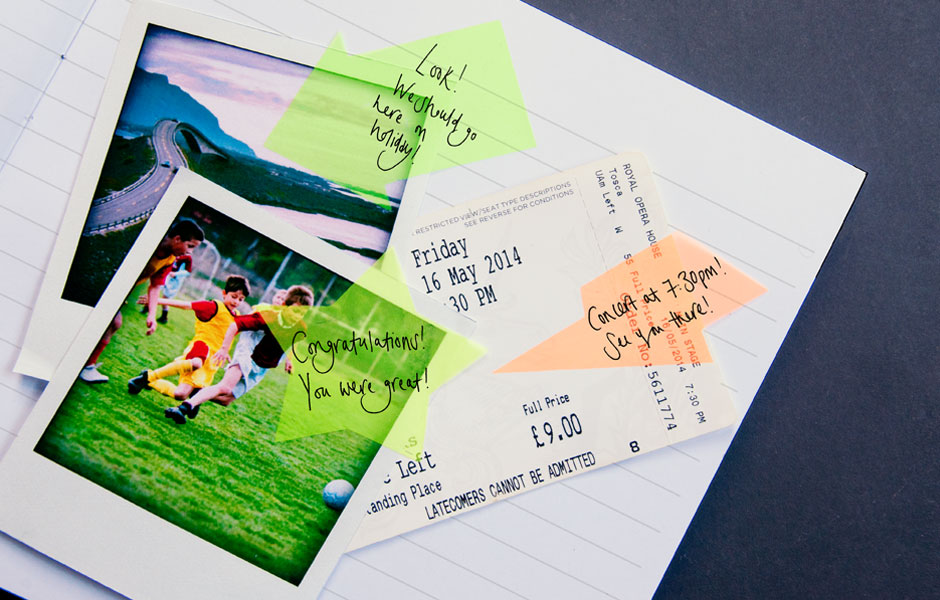 Look!
We should go
here on
holiday!
Congratulations!
You were great!
RESTRICTED VIEW/SEAT TYPE DESCRIPTIONS
SEE REVERSE FOR CONDITIONS
Friday
16 May 2014
:30 PM
Full Price
£9.00
Left
anding Place
LATECOMERS CANNOT BE ADMITTED
8
ROYAL OPERA HOUSE
Tosca
UAm Left W
Full Price
16/05/2014 7:30 PM
STAGE
Order No: 5611774
Concert at 7:30pm!
See you there!